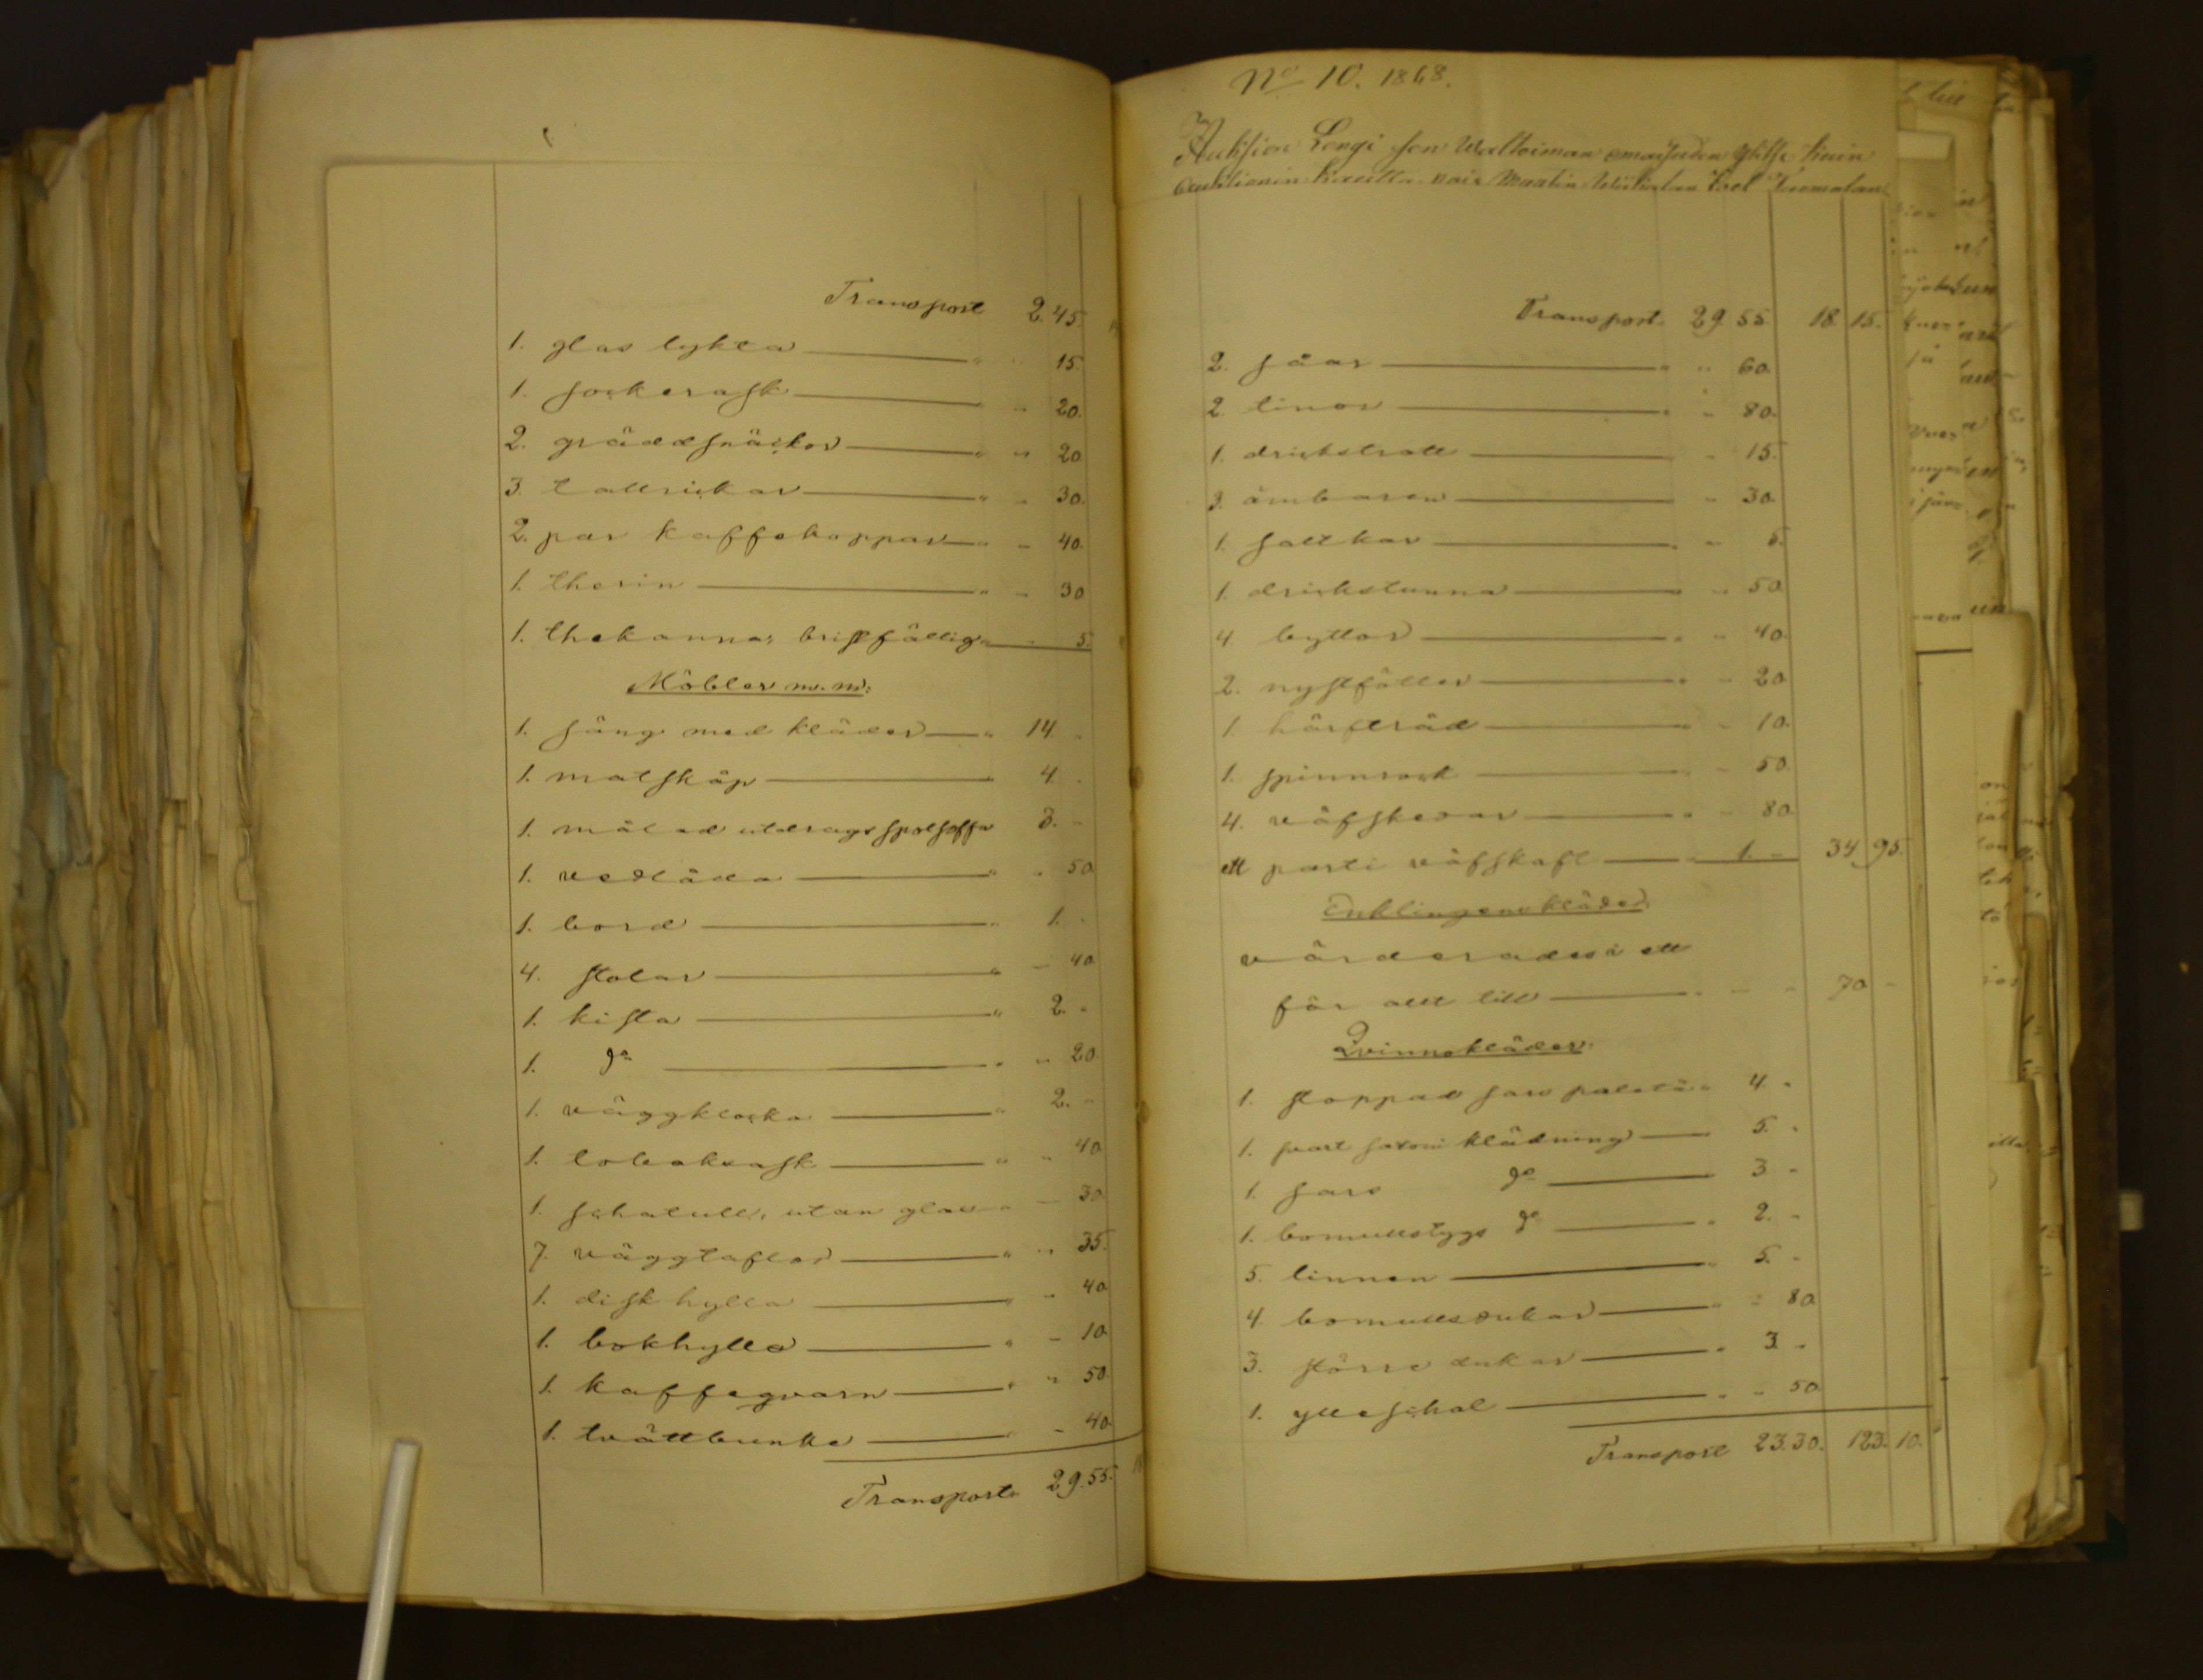 Transport 2. 45.
1. glas lykta " " 15.
1. sockerask " " 20.
2. gräddsnäckor " " 20
3. tallrickar " " 30.
2. par kaffekoppar " " 40.
1. therin " " 30
1. thekanna, bristfällig " " 5.
Möbler m. m:
1. säng med kläder " 14 -
1. matskåp 4. -
1. målad utdrags spolsoffa 3. -
1. vedlåda " " 50
1. bord " 1. -
4. stolar " - 40
1. kista " 2. -
1. do " - 20
1. väggklocka " 2. -
1. tobaksask " - 40
1. schatull, utan glas " - 30.
7. väggtaflor " " 35.
1. disk hylla " - 40
1. bokhylla " - 10
1. kaffeqvarn " " 50.
1. tvättbunke " - 40
Transport 29.55.
No 10. 1868.
Auksion Lengi sen
Transport. 29 55. 18. 15.
2. såar " " 60
2. tinor " " 80.
1. drickstratt - 15.
3. ämbaren " 30.
1. saltkar " - 5.
1. drickstunna " " 50.
4. byttor " " 40.
2. nystfötter " - 20
1. härfträd " - 10.
1. spinnrock " - 50
4. väfskedar " - 80.
ett parti väfskaft " 1. - 34. 95.
Enklingens kläder.
värderades i ett
för allt till " - - 70 -
Qvinnokläder.
1. stoppad sars paletå " 4 -
1. svart satoni klädning 5. -
1. sars do 3 -
1. bomullstygs do " 2. -
5. linnen " 5. -
4. bomullsdukar " - 80
3. större dukar " 3 -
1. ylleschal " - 50
Transport 23.30. 123. 10.